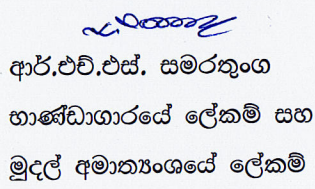 ආර්.එච්.එස්. සමරතුංග
භාණ්ඩාගාරයේ ලේකම් සහ
මුදල් අමාත්‍යංශයේ ලේකම්